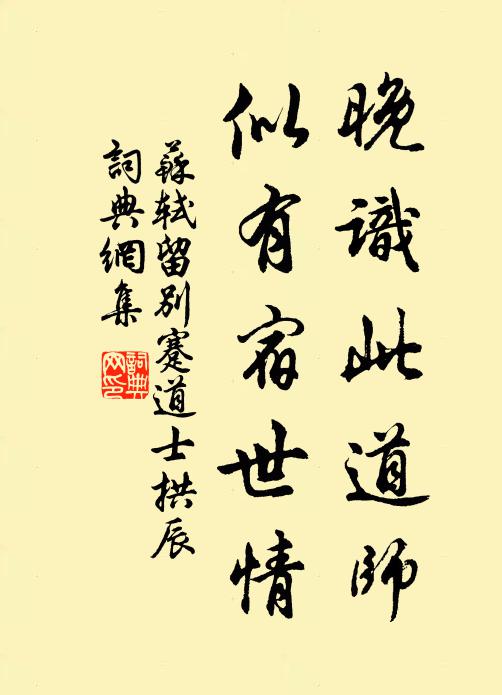 晚識此道師
似有宿世情
蘇軾留別蹇道士拱辰
詞典網集
詞典
网印